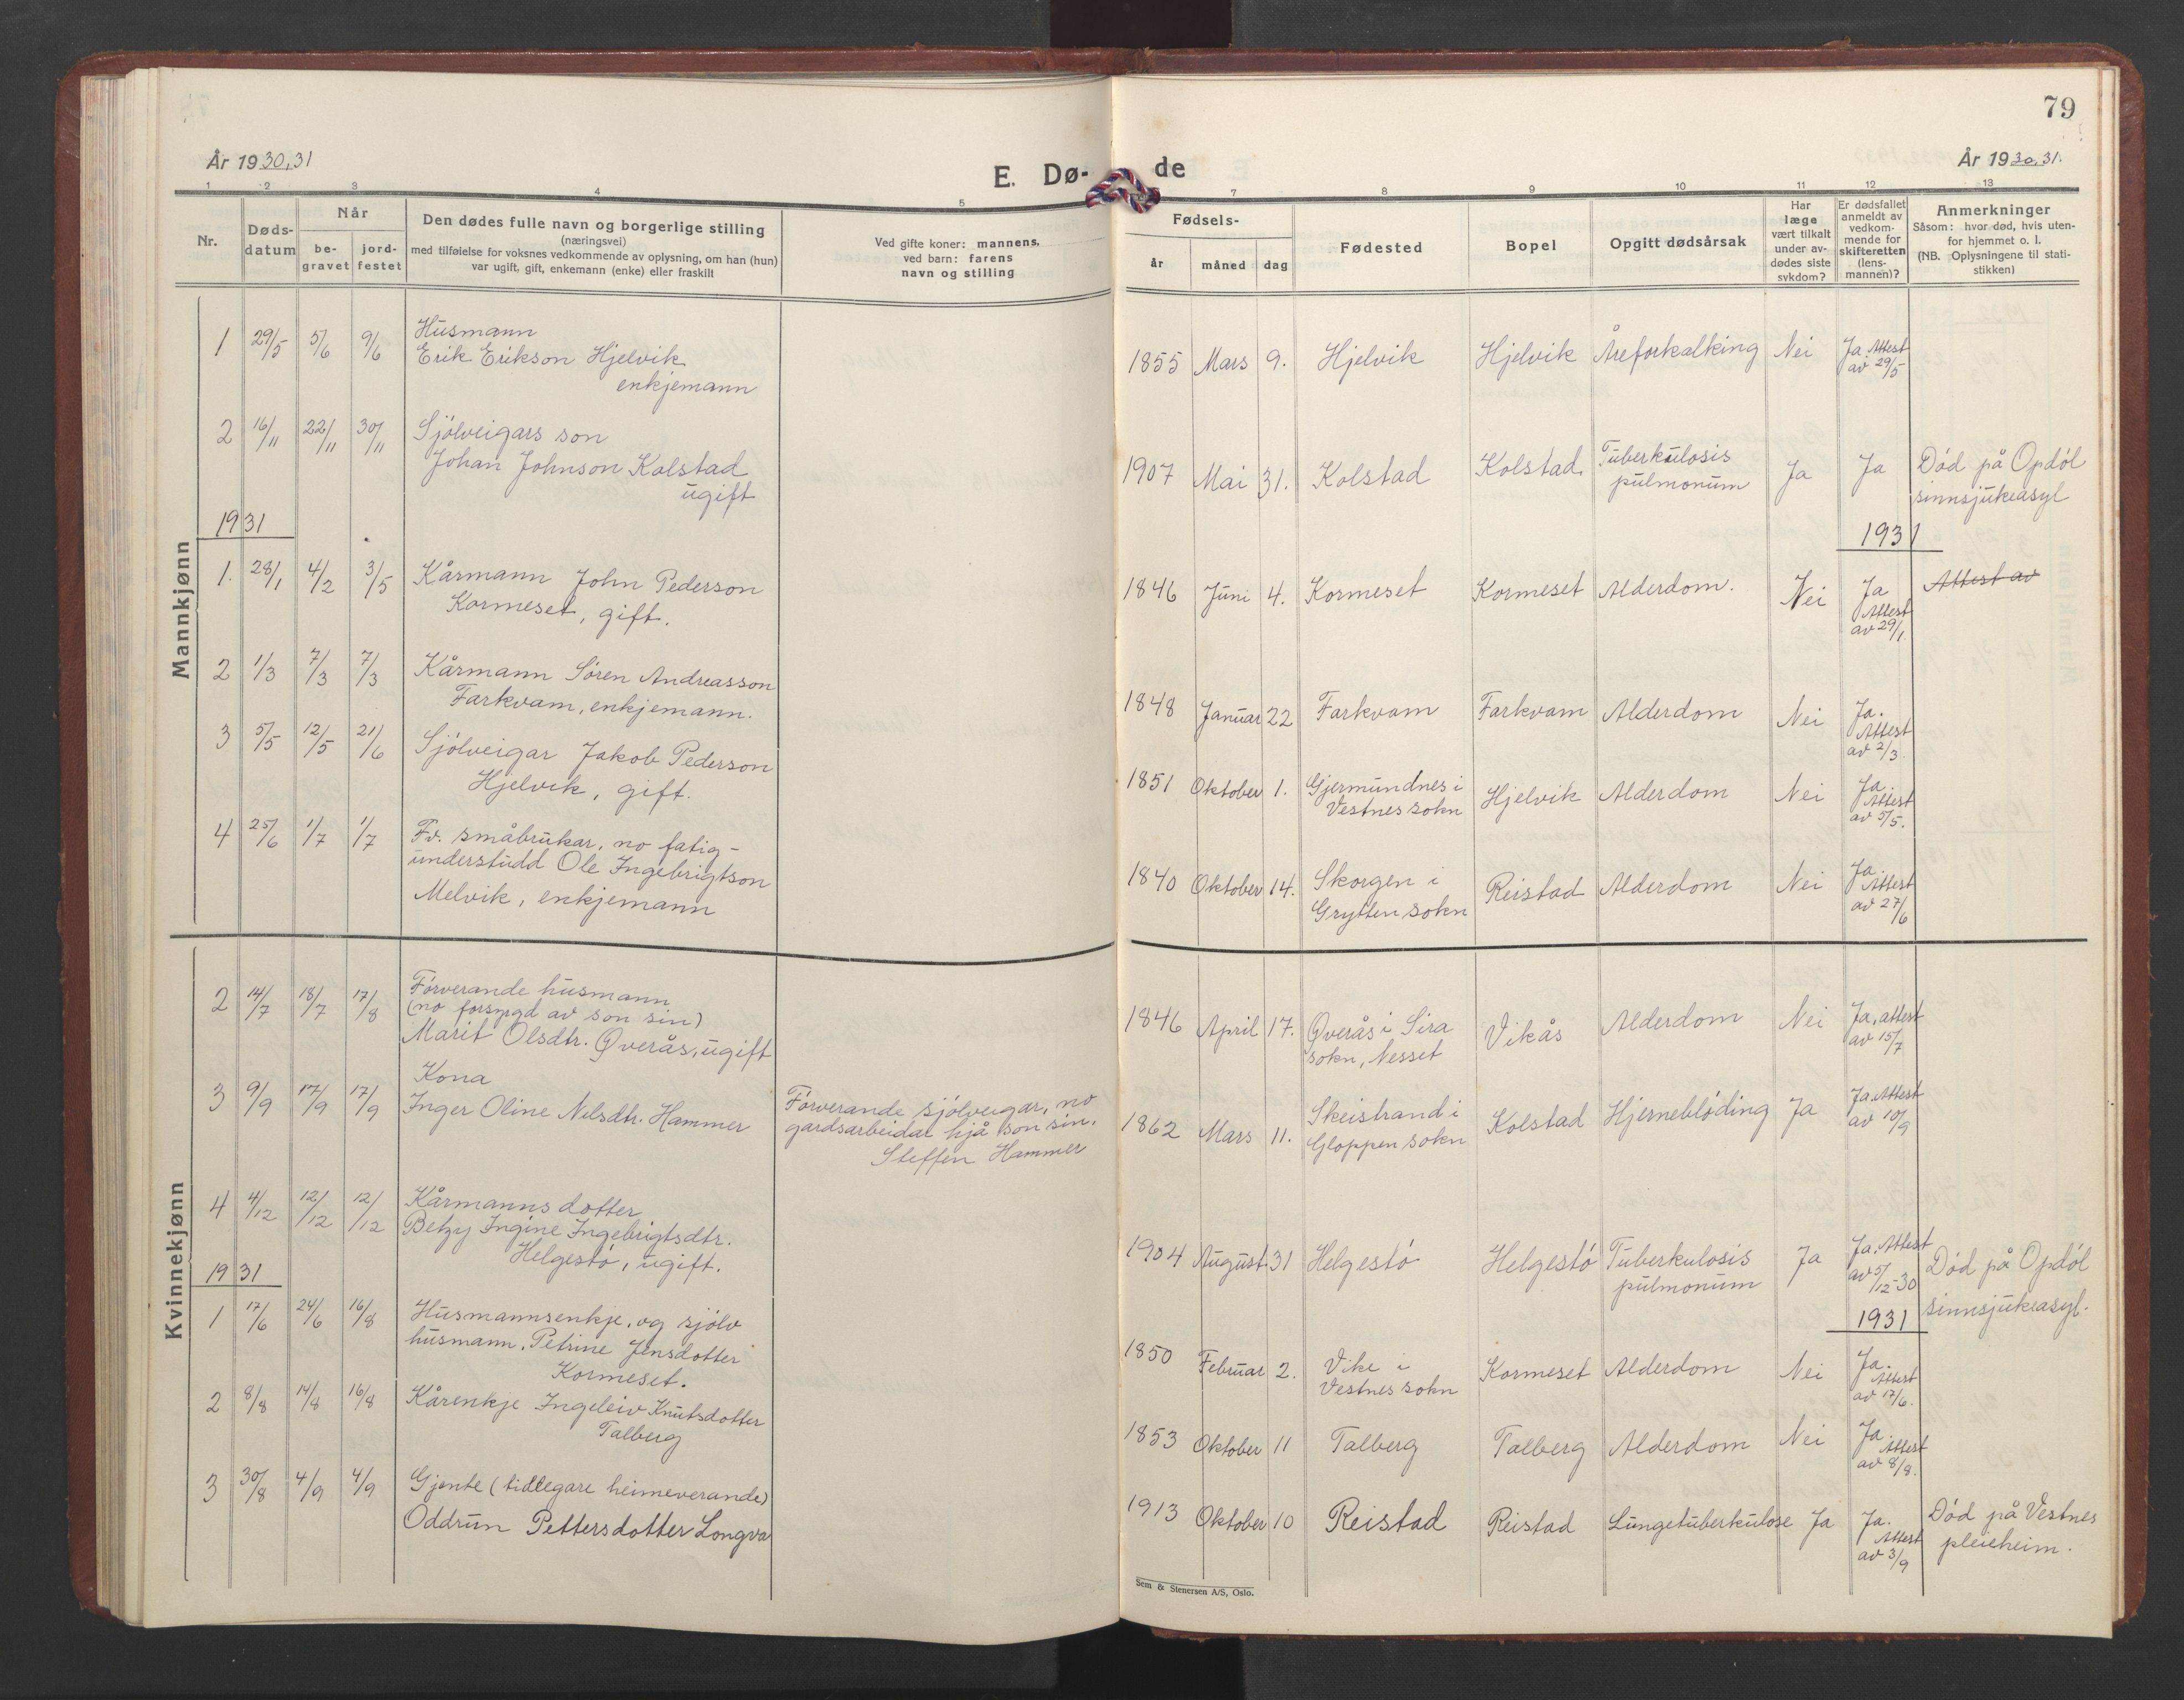 79
År 1930,31
År 1930,31.
E. Dø-
de
1 2 3 4 5 7 8 9 10 11 12 13
Nr.
Døds-
datum
Når
be-
gravet
jord-
festet
Den dødes fulle navn og borgerlige stilling
(næringsvei)
med tilføielse for voksnes vedkommende av oplysning, om han (hun)
var ugift, gift, enkemann (enke) eller fraskilt
Ved gifte koner: mannens,
ved barn: farens
navn og stilling
Fødsels-
år måned dag
Fødested
Bopel
Opgitt dødsårsak
Har
læge
vært tilkalt
under av-
dødes siste
sykdom?
Er dødsfallet
anmeldt av
vedkom-
mende for
skifteretten
(lens-
mannen)?
Anmerkninger
Såsom: hvor død, hvis uten-
for hjemmet o. l.
(NB. Oplysningene til stati-
stikken)
Mannkjønn
1 29/5 5/6 9/6 Husmann
Erik Erikson Hjelvik
enkjemann
1855 Mars 9. Hjelvik Hjelvik Åreforkalking Nei Ja. Attest
av 29/5
2 16/11 22/11 30/11 Sjölveigars son
Johan Johnson Kolstad
ugift
1907 Mai 31. Kolstad Kolstad. Tuberkulosis
pulmonum Ja Ja Död på Opdöl
sinnsjukeasyl
1931
1931
1. 28/1 4/2 3/5 Kårmann John Pederson
Kormeset, gift.
1846 Juni 4. Kormeset Kormeset Alderdom. Nei Ja
Attest
av 29/1.
Attest av
2 1/3 7/3 7/3 Kårmann Sören Andreasson
Farkvam, enkjemann.
1848 Januar 22 Farkvam Farkvam Alderdom Nei Ja.
Attest
av 2/3.
3 5/5 12/5 21/6 Sjölveigar Jakob Pederson
Hjelvik, gift.
1851 Oktober 1. Gjermundnes i
Vestnes sokn Hjelvik Alderdom Nei Ja.
Attest
av 5/5.
4 25/6 1/7 1/7 Fv. småbrukar, no fatig-
understudd Ole Ingebrigtson
Melvik, enkjemann
1840 Oktober 14. Skorgen i
Grytten sokn Reistad Alderdom Nei Ja.
Attest
av 27/6
Kvinnekjønn
2 14/7 18/7 17/8 Förverande husmann
(no forsyrgd av son sin)
Marit Olsdtr. Øverås, ugift
1846 April 17. Øverås i Sira
sokn, Nesset Vikås Alderdom Nei Ja, attest
av 15/7
3 9/9 17/9 17/9 Kona
Inger Oline Nilsdtr. Hammer
Förverande sjölveigar, no
gardsarbeidar hjå son sin.
Steffen Hammer
1862 Mars 11. Skeistrand i
Gloppen sokn Kolstad Hjerneblöding Ja Ja. Attest
av 10/9
4 4/12 12/12 12/12 Kårmanns dotter
Betzy Ingine Ingebrigtsdtr.
Helgestö, ugift.
1904 August 31 Helgestö Helgestö Tuberkulosis
pulmonum Ja Ja. Attest
av 5/12-30 Död på Opdöl
sinnsjukeasyl.
1931
1931
1 17/6 24/6 16/8 Husmannsenkje, og sjölv
husmann, Petrine Jensdotter
Kormeset.
1850 Februar 2. Vike i
Vestnes sokn Kormeset Alderdom Nei Ja.
Attest
av 17/6.
2 8/8 14/8 16/8 Kårenkje Ingeleiv Knutsdotter
Talberg
1853 Oktober 11 Talberg Talberg Alderdom Nei Ja.
Attest
av 8/8.
3 30/8 4/9 4/9 Gjente (tidlegare heimeverande)
Oddrun Pettersdotter Longva
1913 Oktober 10 Reistad Reistad Lungetuberkulose Ja Ja.
Attest
av 3/9 Död på Vestnes
pleieheim.
Sem & Stenersen A/S, Oslo.